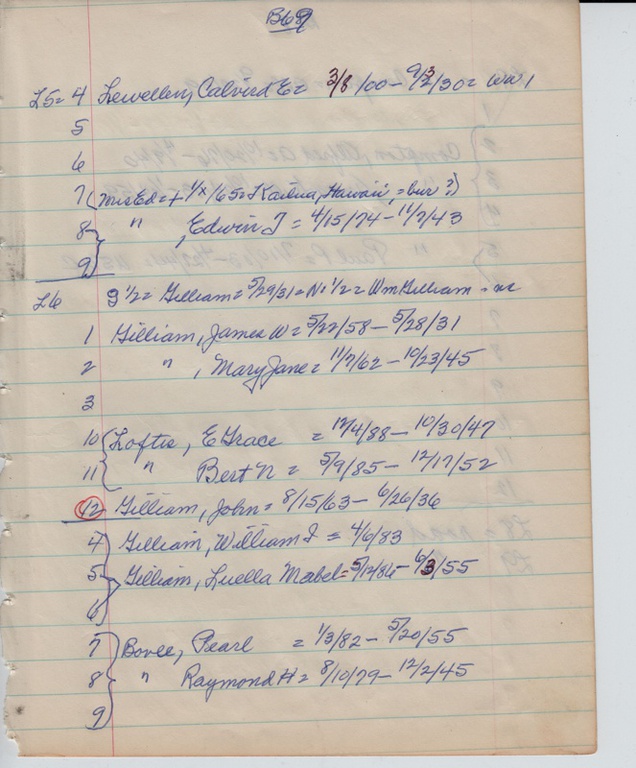 B68
L5= 4 Lewellen, Calvird E= 3/8/00 - 9/3/30= WW1
5
6
7 (Mrs Ed=+ 1/x/65= Kailua, Hawaii, = bur?)
8 " , Edwin J = 4/15/74 - 11/7/43
9
L6 S 1/2= Gilliam= 5/29/31= N. 1/2= Wm Gilliam =
1 Gilliam, James W= 5/22/58 - 5/28/31
2 " , Mary Jane= 11/7/62 - 10/23/45
3
10 Loftis, E Grace = 12/4/88 - 10/30/47
11 " Bert N = 5/9/85 - 12/17/52
12 Gilliam, John= 8/15/63 - 6/26/36
4 Gilliam, William I = 4/6/83
5 Gilliam, Luella Mabel= 5/12/86 - 6/3/55
6
7 Bovee, Pearl = 1/3/82 - 5/20/55
8 " Raymond H= 8/10/79 - 12/2/45
9